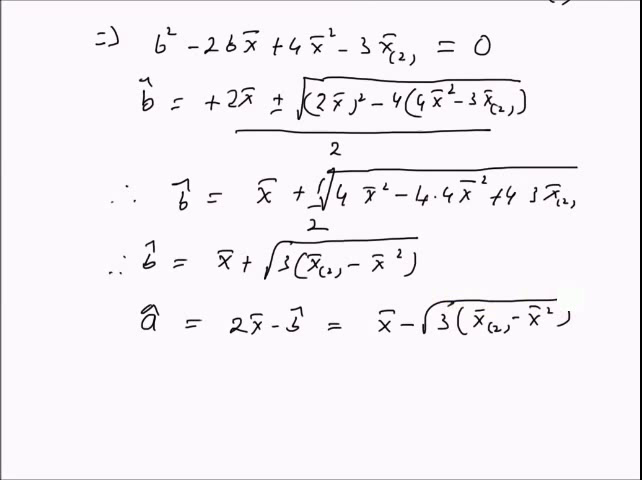 => b² - 2bx̄ + 4x̄² - 3x̄₍₂₎ = 0
b̂ = +2x̄ ± √((2x̄)² - 4(4x̄² - 3x̄₍₂₎)) / 2
∴ b̂ = x̄ + 1/2 √(4x̄² - 4·4x̄² + 4 3x̄₍₂₎)
∴ b̂ = x̄ + √(3(x̄₍₂₎ - x̄²))
â = 2x̄ - b̂ = x̄ - √(3(x̄₍₂₎ - x̄²))